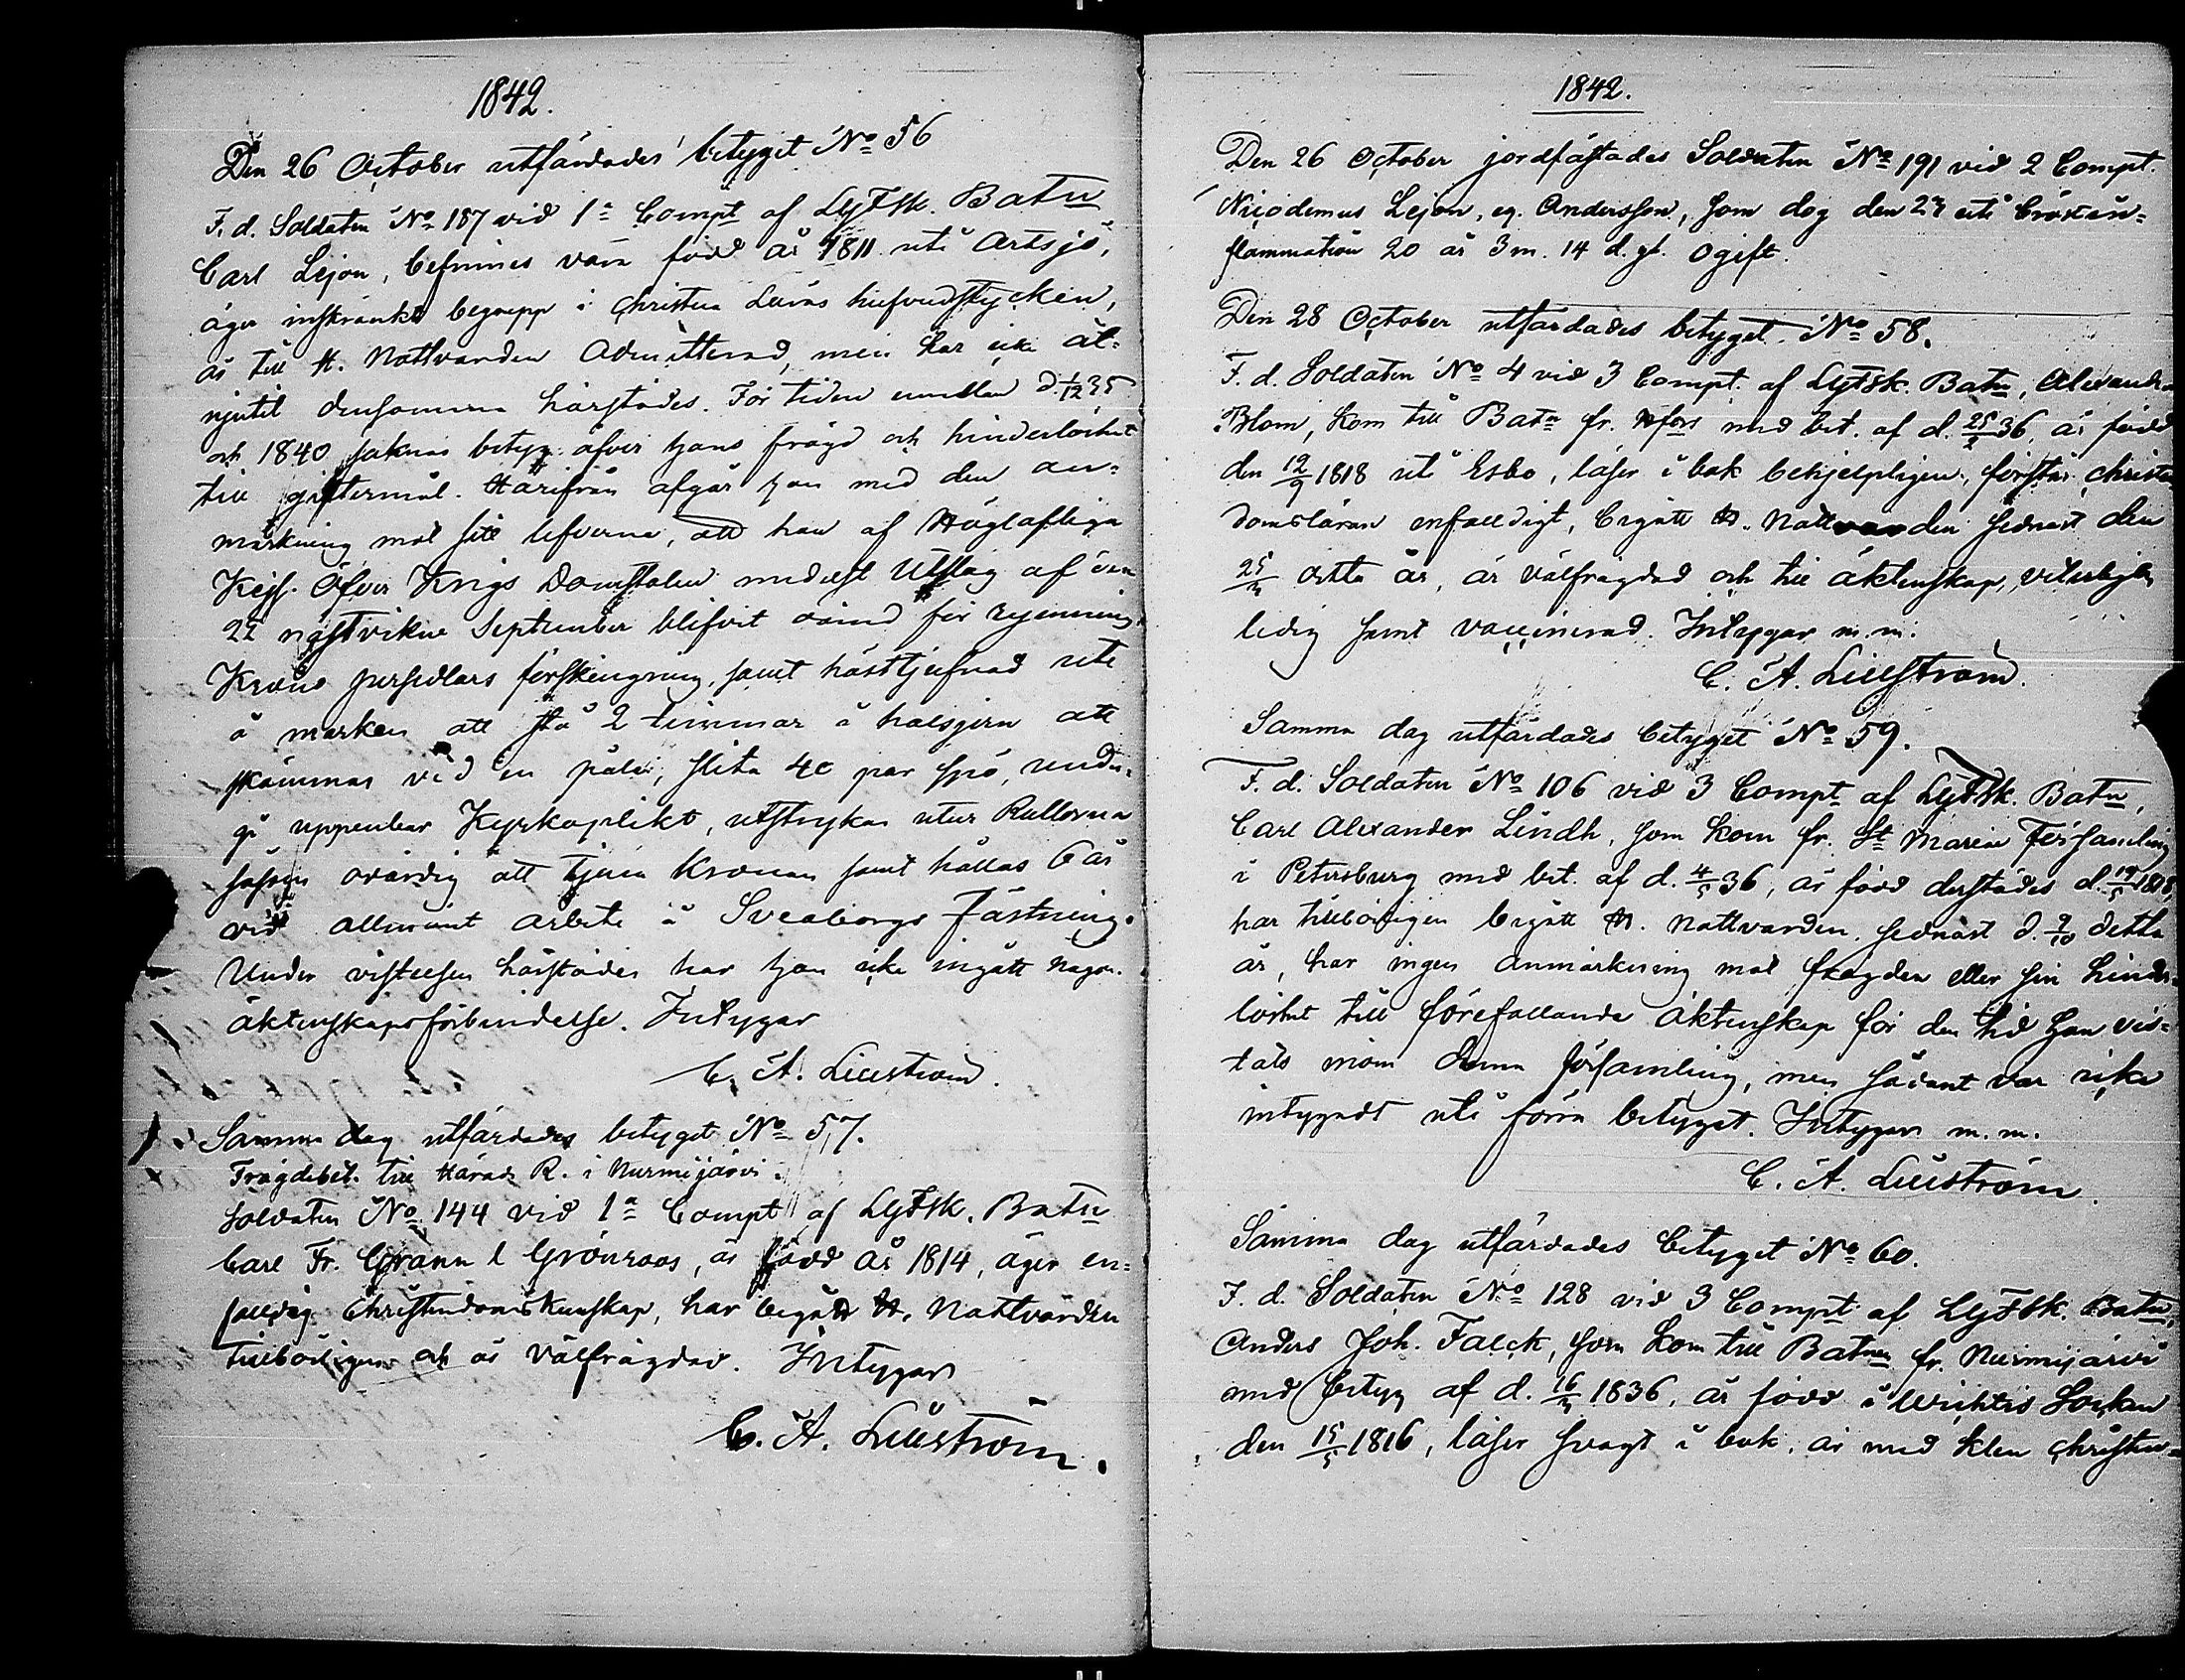 1842.
Den 26 October utfärdades betyget No 56
F. d. Soldaten No 187 vid 1a Compt af LyFSk. Batn
Carl Lejon, befinnes vara född år 1811 uti Artsjö,
äger inskränkt begrepp i Christna Lärans hufvudstycken,
är till H. Nattvarden Admitterad, men har icke åt-
njutit densamma härstädes. För tiden emellan d. 1/12 35
och 1840 saknas betyg öfver hans frägd och hinderlöshet
till giftermål. Härifrån afgår han med den an-
märkning mot sitt lefverne, att han af Höglofliga
Kejs. Öfver Krigs Domstolen medelst Utslag af den
22 nästvikne September blifvit dömd för rymning,
Krono persedlars förskingring, samt hästtjufnad ute
å marken att stå 2 timmar i halsjern att
skämmas vid en påle, slita 40 par spö, under-
gå uppenbar Kyrkoplikt, utstrykas utur Rullorna
såsom ovärdig att tjena Kronan samt hållas 6 år
vid allmänt arbete å Sveaborgs Fästning.
Under vistelsen härstädes har han icke ingått någon
äktenskapsförbindelse. Intygar
C. A. Lilliström.
Samma dag utfärdades betyget No 57.
Frägdebet. till Härads R. i Nurmijärvi.
Soldaten No 144 vid 1a Compt af LyFSk. Batn
Carl Fr. Grann l Grönroos, är född år 1814, äger en-
faldig Christendomskunskap, har begått H. Nattvarden
tillbörligen och är välfrägdad. Intygar
C. A. Lilliström.
1842.
Den 26 October jordfästades Soldaten No 191 vid 2 Compt.
Nicodemus Lejon, eg. Andersson, som dog den 23 uti bröstin-
flammation 20 år 3 m. 14 d. gl. Ogift.
Den 28 October utfärdades betyget No 58.
F. d. Soldaten No 4 vid 3 Compt. af LyFSk. Batn, Alexander
Blom, kom till Batn fr. Hfors med bet. af d. 36, är född
den 12/9 1818 uti Esbo, läser i bok behjelpligen, förstår christen-
domsläran enfaldigt, begått H. Nattvarden sednast den
detta år, är välfrägdad och till äktenskap, veterligen
ledig samt vaccinerad. Intygar m. m.
C. A. Lilliström.
Samma dag utfärdades betyget No 59.
F. d. Soldaten No 106 vid 3 Compt af LyFSk. Batn,
Carl Alexander Lindh, som kom fr. St Mariæ Församling
i Petersburg med bet. af d. 4/5 36, är född derstädes d. 19/5 1818,
har tillbörligen begått H. Nattvarden, sednast d. 9/10 detta
år, har ingen anmärkning mot frägden eller sin hinder-
löshet till förefallande äktenskap för den tid han vis-
tats inom denna församling, men sådant var icke
intygadt uti förra betyget. Intygar m. m.
C. A. Lilliström.
Samma dag utfärdades betyget No 60.
F. d. Soldaten No 128 vid 3 Compt af LyFSk. Batn,
Anders Joh. Falck, som kom till Batnen fr. Nurmijärvi
med betyg af d. 1836, är född i Wichtis Socken
den 15/5 1816, läser svagt i bok, är med klen christen-